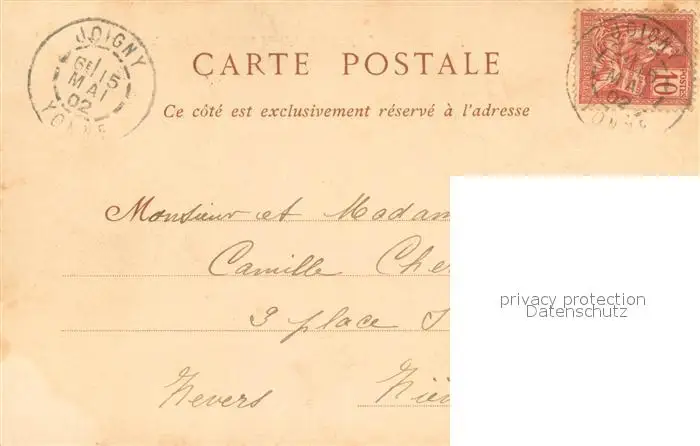 JOIGNY
6E 15
MAI
02
YONNE
CARTE POSTALE
Ce côté est exclusivement réservé à l'adresse
JOIGNY
MAI
02
YONNE
POSTES
10
Monsieur et Madam
Camille Che
3 place
Nevers Niè
privacy protection
Datenschutz